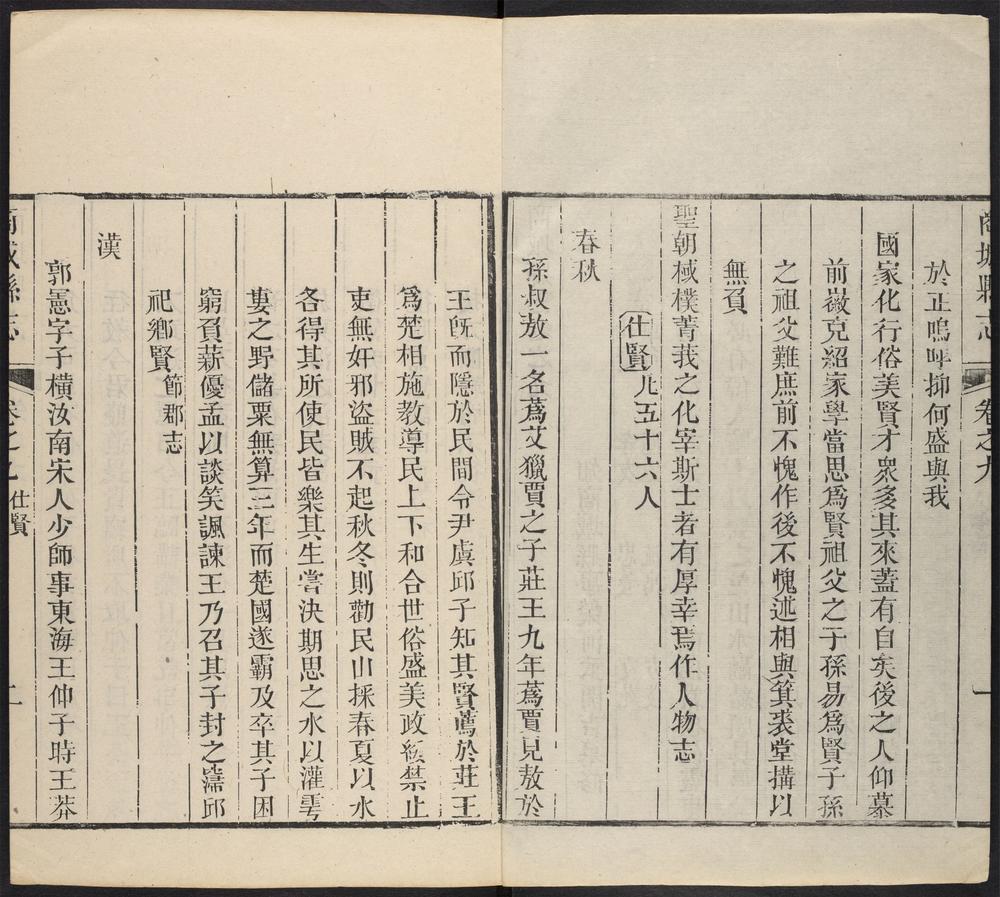 商城縣志
卷之九
一
於正嗚呼抑何盛與我
國家化行俗美賢才衆多其來蓋有自矣後之人仰慕
前徽克紹家學當思爲賢祖父之子孫易爲賢子孫
之祖父難庶前不愧作後不愧述相與箕裘堂搆以
無負
聖朝棫樸菁莪之化宰斯士者有厚幸焉作人物志
仕賢 凡五十六人
春秋
孫叔敖一名蒍艾獵賈之子莊王九年蒍賈見敖於
王旣而隱於民間令尹虞邱子知其賢薦於莊王
爲楚相施教導民上下和合世俗盛美政緩禁止
吏無奸邪盜賊不起秋冬則勸民山採春夏以水
各得其所使民皆樂其生嘗決期思之水以灌雩
婁之野儲粟無算三年而楚國遂霸及卒其子困
窮負薪優孟以談笑諷諫王乃召其子封之寖邱
祀鄉賢 節郡志
漢
郭憲字子橫汝南宋人少師事東海王仲子時王莽
商城縣志
卷之九
仕賢
二